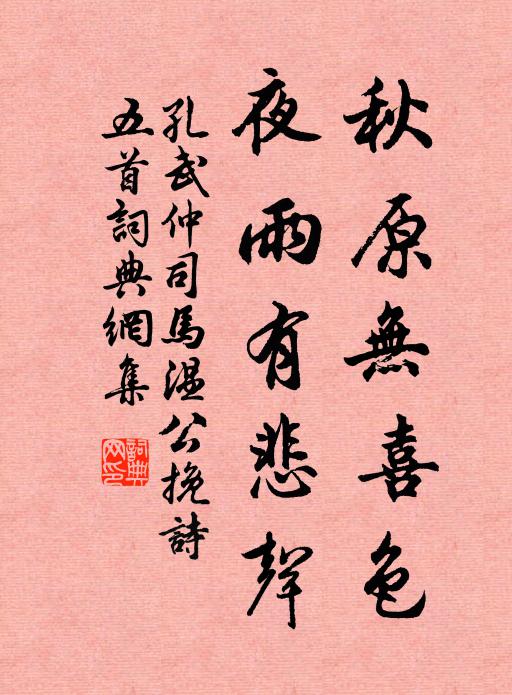 秋原無喜色
夜雨有悲聲
孔武仲司馬温公挽詩
五首詞典網集
詞典网印